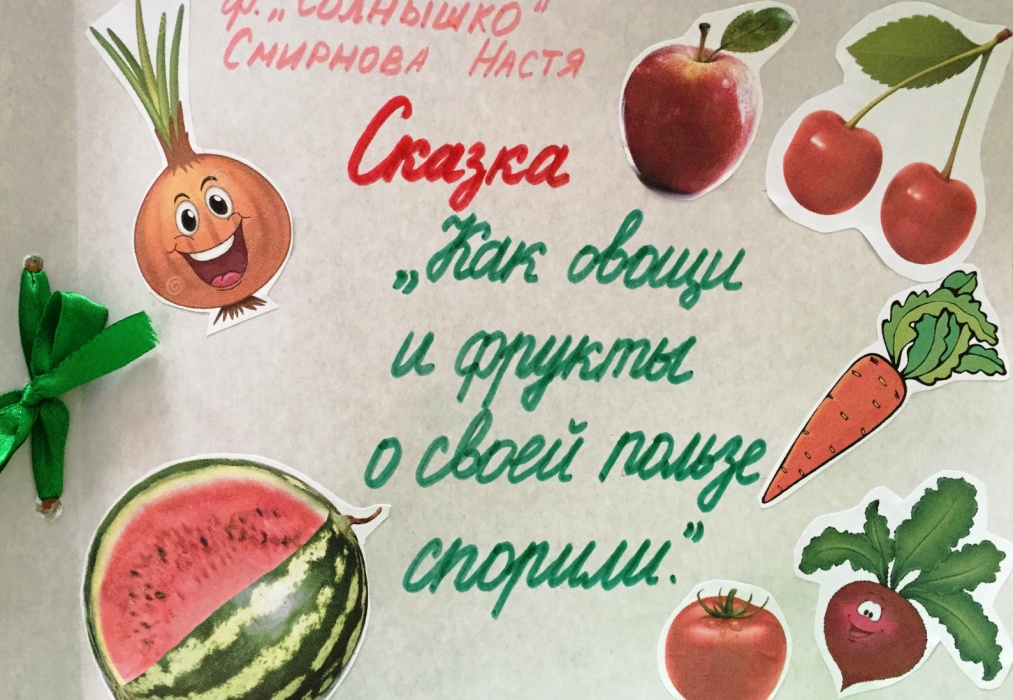 ф. „Солнышко"
Смирнова Настя
Сказка
„Как овощи
и фрукты
о своей пользе
спорили."